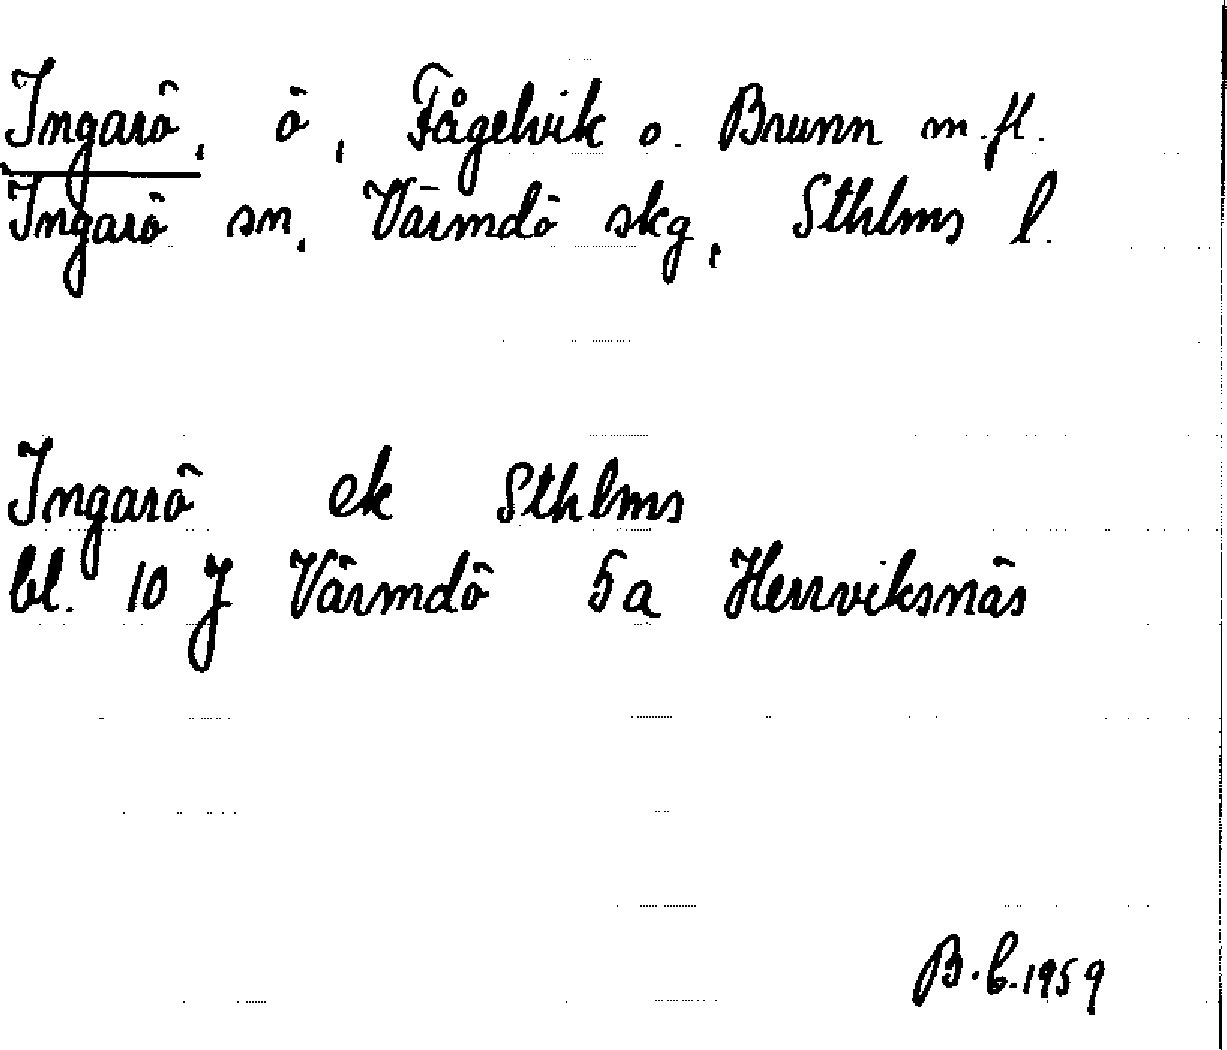 Ingarö, ö, Fågelvik o. Brunn m.fl.
Ingarö sn, Värmdö skg, Sthlms l.
Ingarö ek Sthlms
bl. 10 J Värmdö 5a Herrviksnäs
B.b.1959